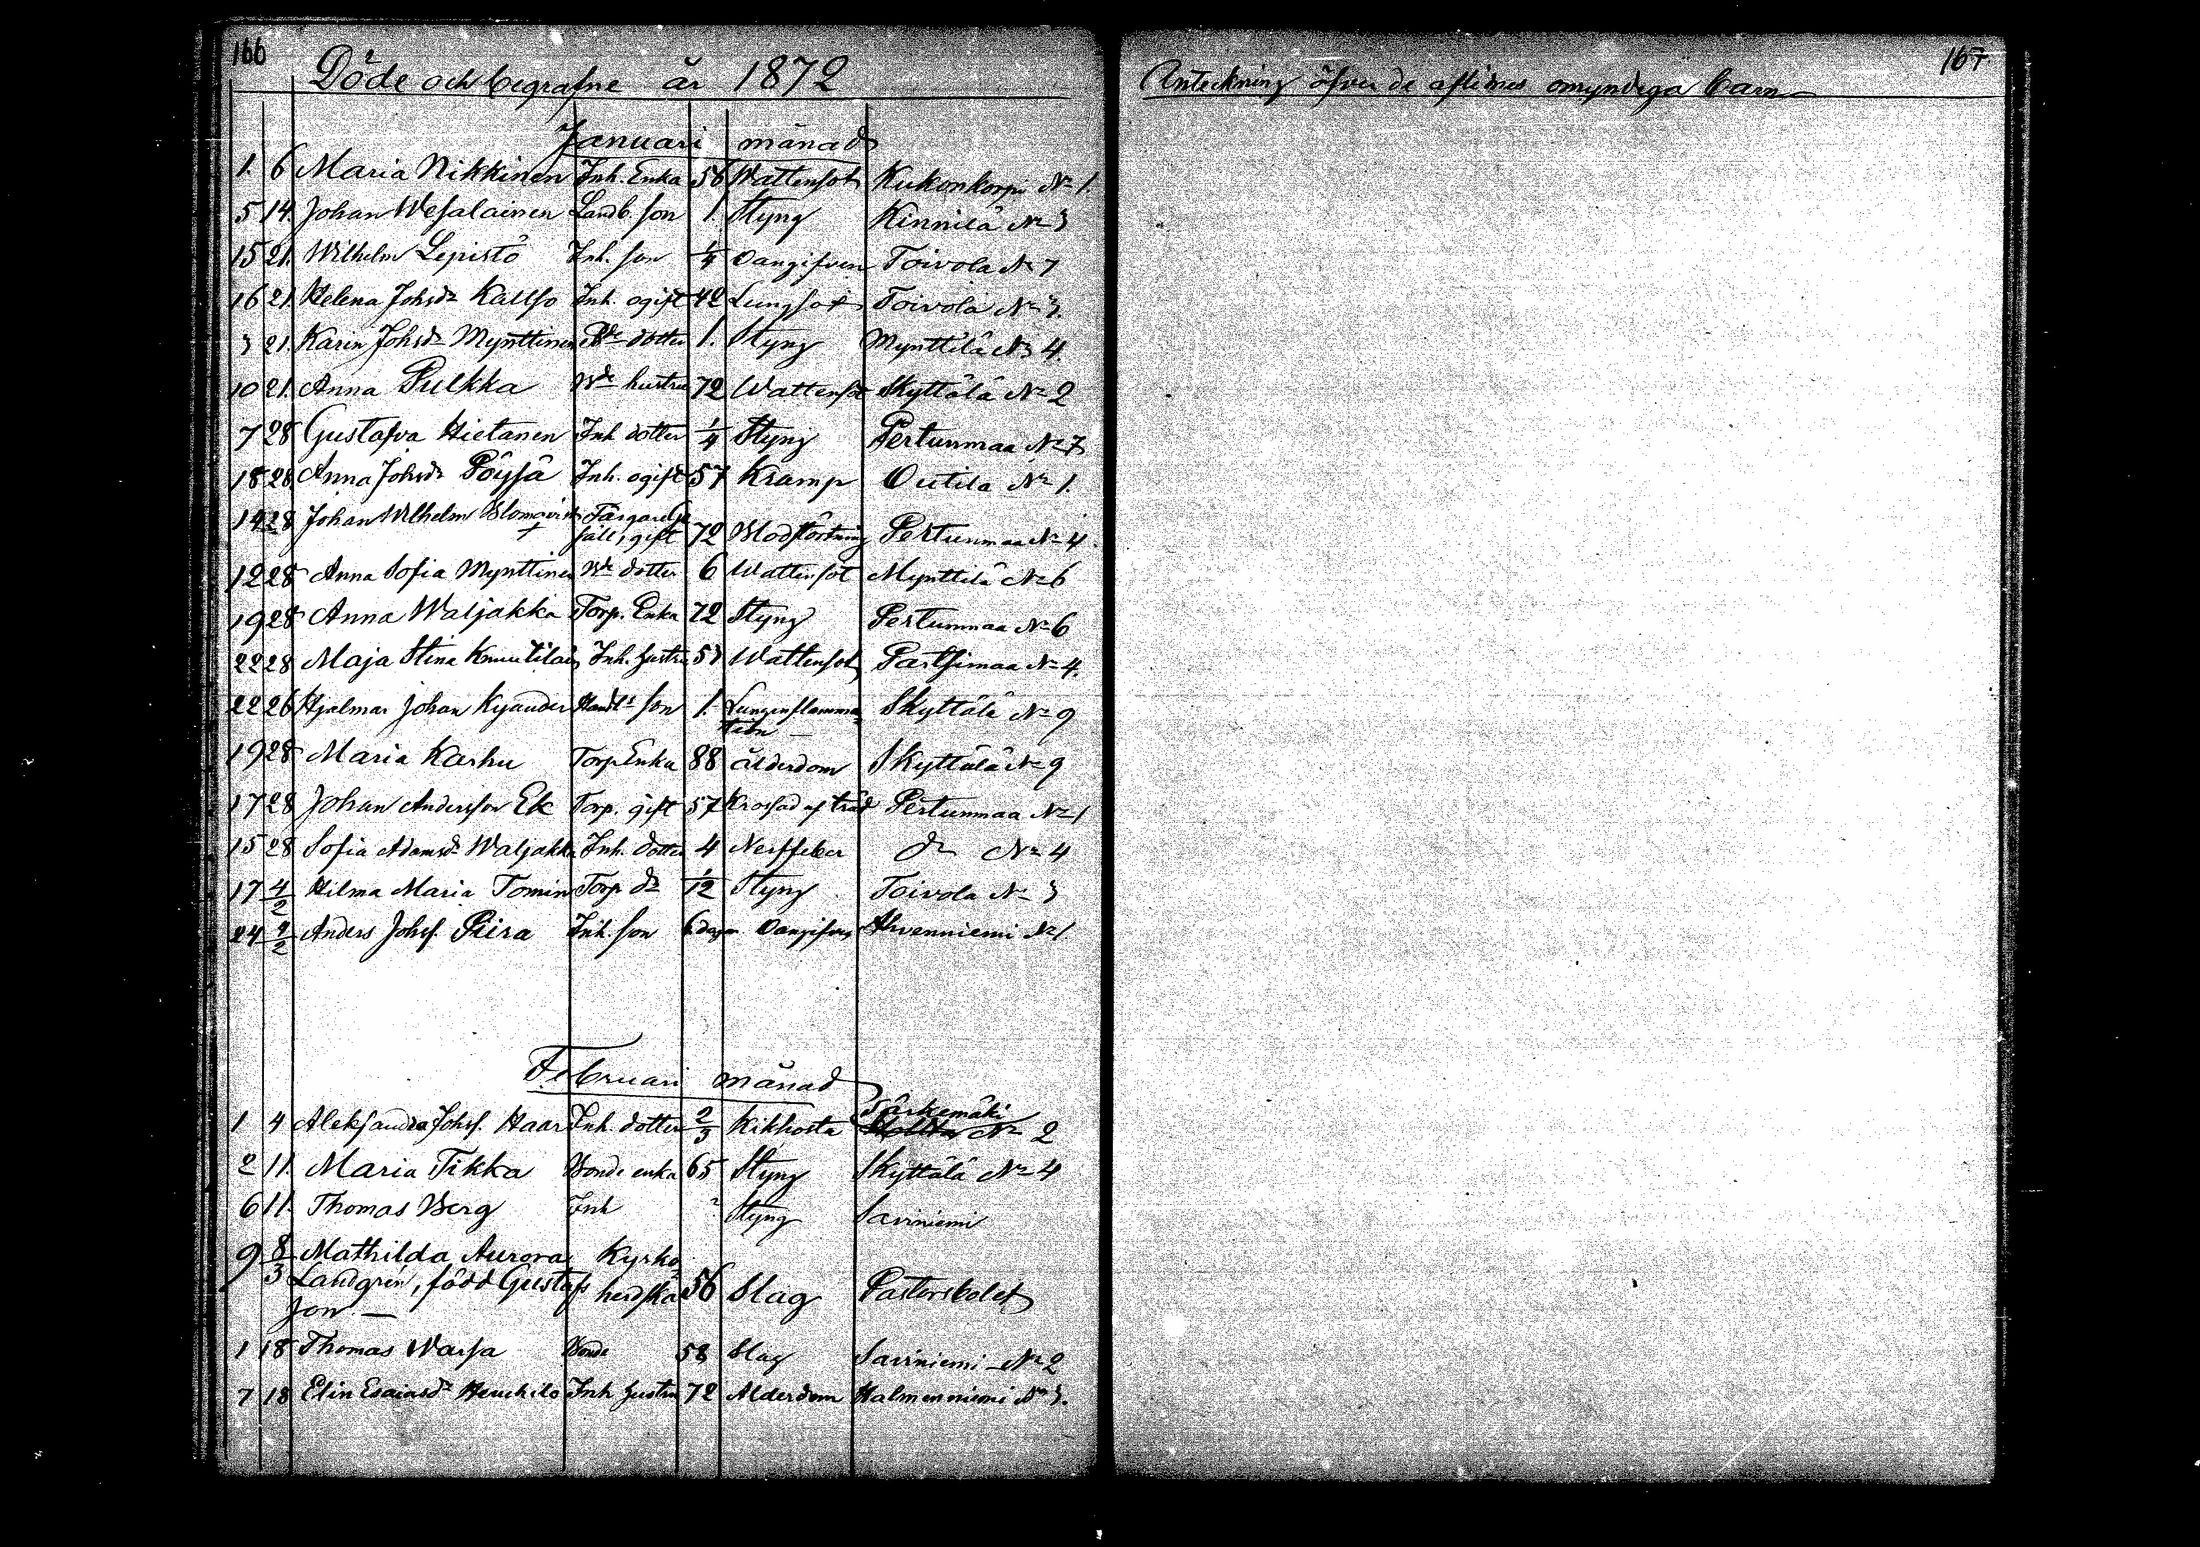 166
Döde och begrafne år 1872
Januari månad
1. 6 Maria Nikkinen Inh. Enka 56 Wattensot Kukonkorpi No 1.
5 14 Johan Wesalainen Landb. son 1. Styng Kinnilä No 3
15 21. Wilhelm Lepistö Inh. son 1/4 Oangifven Toivola No 7
16 21. Helena Johsdr Kallso Inh. ogift 42 Lungsot Toivola No 3.
3 21. Karin Johsdr Mynttinen dotter 1. Styng Mynttilä No 4.
10 21. Anna Pulkka hustru 72 Wattensot Skyttälä No 2
7 28 Gustafva Hietanen Inh dotter 1/4 Styng Pertunmaa No 7
18 28. Anna Johsdr Pöysä Inh. ogift 57 Kramp Outila No 1.
14 28 Johan Wilhelm Blomqvist Färgare
gift 72 Blodstörtning Pertunmaa No 4.
12 28 Anna Sofia Mynttinen dotter 6 Wattensot Mynttilä No 6
19 28 Anna Waljakka Torp. Enka 72 Styng Pertunmaa No 6
22 28 Maja Stina Knuutilain Inh. hustru 57 Wattensot Partsimaa No 4.
22 26 Hjalmar Johan Kyander Handls son 1. Lunginflamma
tion Skyttälä No 9
19 28 Maria Karhu Torp Enka 88 ålderdom Skyttälä No 9
17 28 Johan Andersson Ek Torp. gift 57 Krossad af träd Pertunmaa No 1
15 28 Sofia Adamsdr Waljakka Inh. dotter 4 Nerffeber do No 4
17 4/2 Hilma Maria Tomin Torp dr 1/12 Styng Toivola No 3
24 4/2 Anders Johs. Piira Inh. son 6 dagar Oangifven Ahvenniemi No 1.
Februari månad
Särkemäki
1 4 Aleksandra Johs. Haar Inh. dotter 2/3 Kikhosta No 2
2 11. Maria Tikka Bonde enka 65 Styng Skyttälä No 4
6 11. Thomas Berg Inh ? Styng Saviniemi
9 8/3 Mathilda Aurora Kyrko
Landgren, född Gustafs herdska 56 Slag Pastorsbolet
son. —
1 18 Thomas Warsa Bonde 58 Slag Saviniemi No 2
7 18 Elin Esaiasdr Inh hustru 72 Alderdom Halmenniemi No 3.
167
Anteckning öfver de aflidnes omyndiga barn